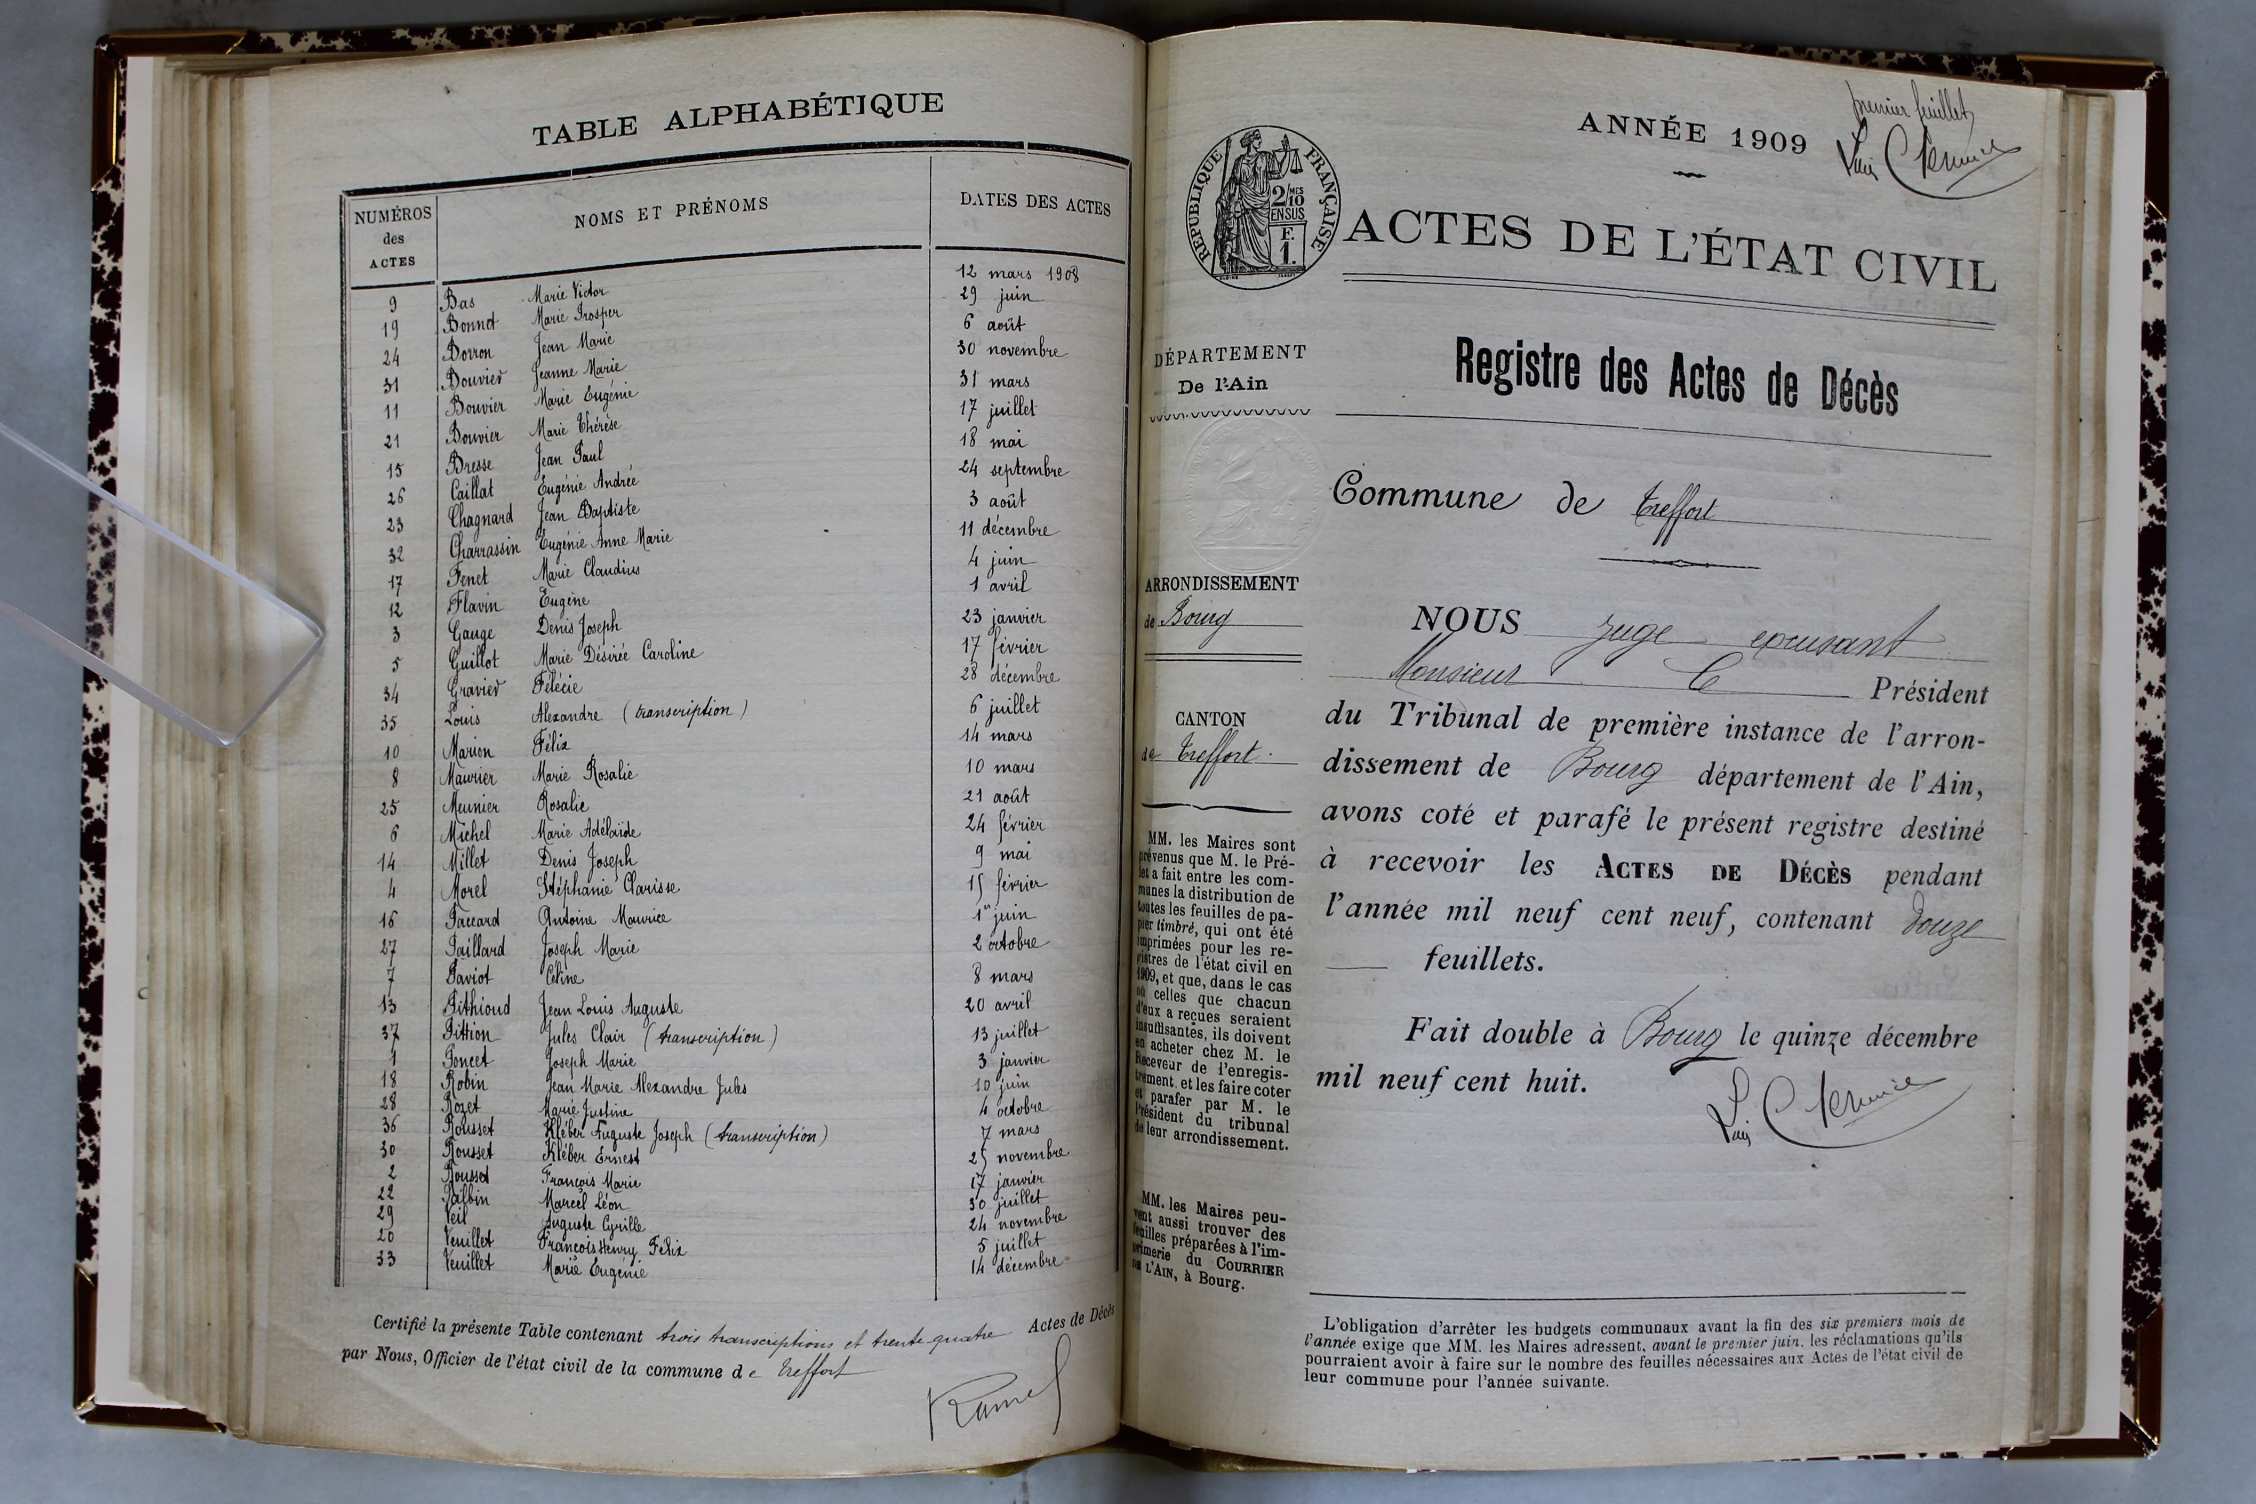 TABLE ALPHABÉTIQUE
NUMÉROS des ACTES NOMS ET PRÉNOMS DATES DES ACTES
9 Bas Marie Victor 12 mars 1908
19 Bonnet Marie Prosper 29 juin
24 Borron Jean Marie 6 août
31 Bouvier Jeanne Marie 30 novembre
11 Bouvier Marie Eugénie 31 mars
21 Bouvier Marie Thérèse 17 juillet
15 Bresse Jean Paul 18 mai
26 Caillat Eugénie Andrée 24 septembre
23 Chagnard Jean Baptiste 3 août
32 Charrassin Eugénie Anne Marie 11 décembre
17 Fenet Marie Claudius 4 juin
12 Flavin Eugène 1 avril
3 Gauge Denis Joseph 23 janvier
5 Guillot Marie Désirée Caroline 17 février
34 Gravier Félécie 28 décembre
35 Louis Alexandre (transcription) 6 juillet
10 Marion Félix 14 mars
8 Maurier Marie Rosalie 10 mars
25 Meunier Rosalie 21 août
6 Michel Marie Adélaïde 24 février
14 Millet Denis Joseph 9 mai
4 Morel Stéphanie Clarisse 15 février
16 Paccard Antoine Maurice 1er juin
27 Paillard Joseph Marie 2 octobre
7 Paviot Céline 8 mars
13 Pithioud Jean Louis Auguste 20 avril
37 Pittion Jules Clair (transcription) 13 juillet
1 Poncet Joseph Marie 3 janvier
18 Robin Jean Marie Alexandre Jules 10 juin
28 Rozet Marie Justine 4 octobre
36 Rousset Kléber Auguste Joseph (transcription) 7 mars
30 Rousset Kléber Ernest 25 novembre
2 Rousset François Marie 17 janvier
22 Marcel Léon 30 juillet
29 Veil Auguste Cyrille 24 novembre
20 Veuillet François Henry Félix 5 juillet
33 Veuillet Marie Eugénie 14 décembre
Certifié la présente Table contenant trois transcriptions et trente-quatre Actes de Décès
par Nous, Officier de l'état civil de la commune de Treffort
premier feuillet
ANNÉE 1909
RÉPUBLIQUE FRANÇAISE
2/10 MES
EN SUS
F.
1.
ACTES DE L'ÉTAT CIVIL
DÉPARTEMENT
De l'Ain
Registre des Actes de Décès
Commune de Treffort
ARRONDISSEMENT
de Bourg
CANTON
de Treffort
MM. les Maires sont
prévenus que M. le Pré-
fet a fait entre les com-
munes la distribution de
toutes les feuilles de pa-
pier timbré, qui ont été
imprimées pour les re-
gistres de l'état civil en
1909, et que, dans le cas
où celles que chacun
d'eux a reçues seraient
insuffisantes, ils doivent
en acheter chez M. le
Receveur de l'enregis-
trement, et les faire coter
et parafer par M. le
Président du tribunal
de leur arrondissement.
MM. les Maires peu-
vent aussi trouver des
feuilles préparées à l'im-
primerie du COURRIER
DE L'AIN, à Bourg.
NOUS Juge excusant
Monsieur le Président
du Tribunal de première instance de l'arron-
dissement de Bourg département de l'Ain,
avons coté et parafé le présent registre destiné
à recevoir les ACTES DE DÉCÈS pendant
l'année mil neuf cent neuf, contenant douze
feuillets.
Fait double à Bourg le quinze décembre
mil neuf cent huit.
L'obligation d'arrêter les budgets communaux avant la fin des six premiers mois de
l'année exige que MM. les Maires adressent, avant le premier juin, les réclamations qu'ils
pourraient avoir à faire sur le nombre des feuilles nécessaires aux Actes de l'état civil de
leur commune pour l'année suivante.